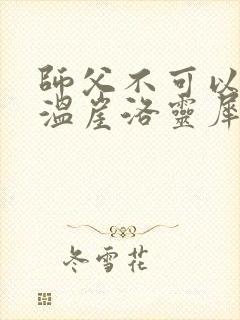 師父不可以
溫崖洛靈犀
冬雪花